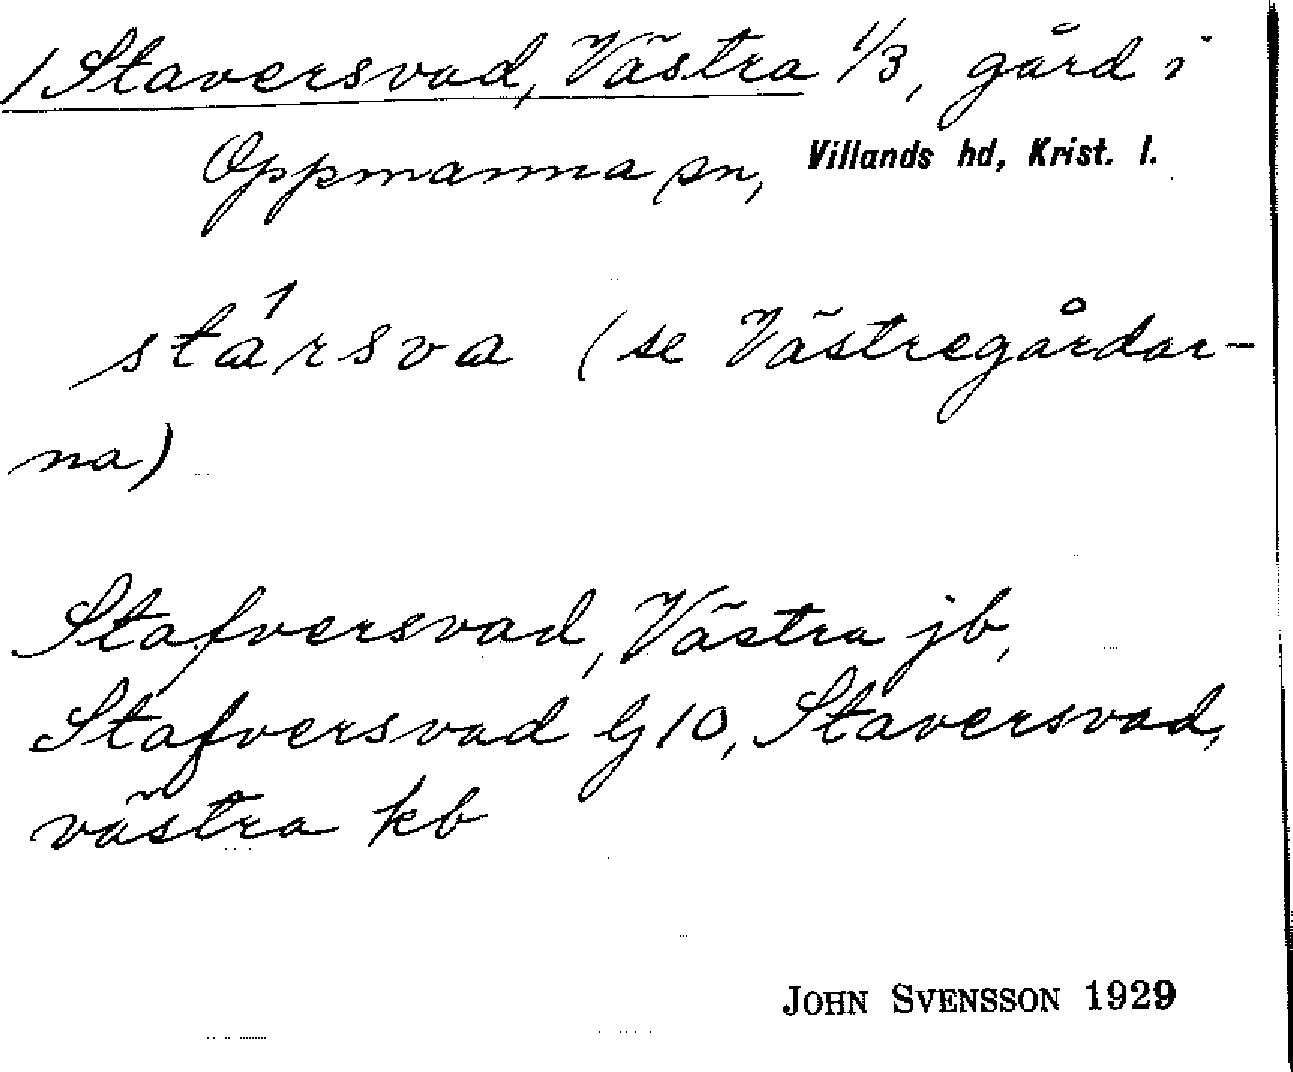 /Staversvad, Västra 1/3, gård i
Oppmanna sn, Villands hd, Krist. l.
stársva (se Västregårdar-
na)
Stafversvad, Västra jb,
Stafversvad G10, Staversvad,
västra kb
JOHN SVENSSON 1929